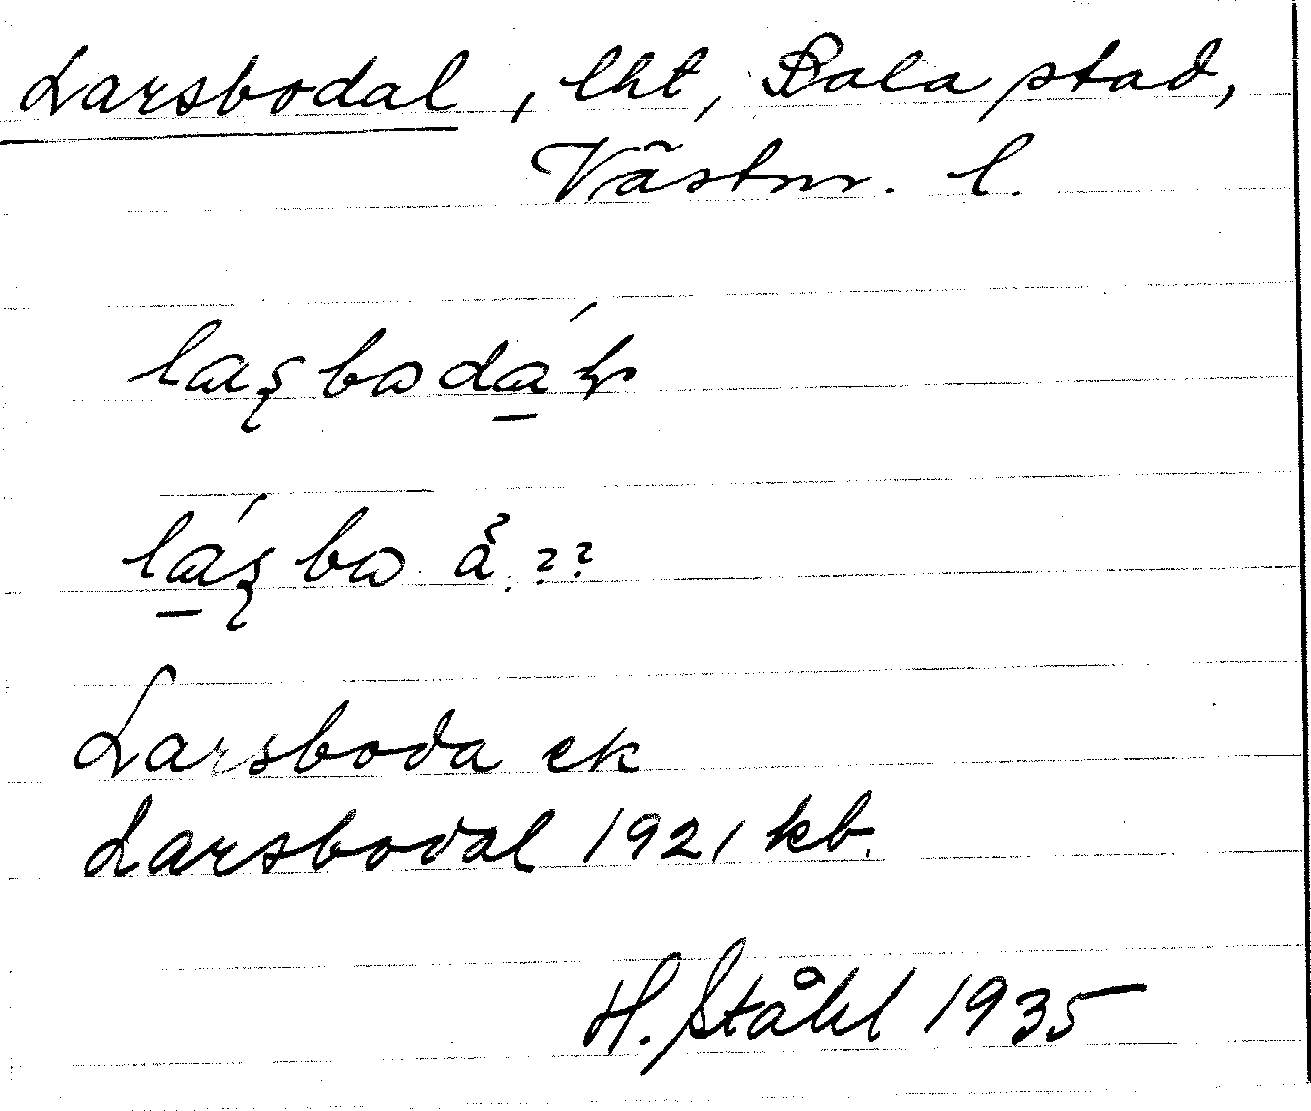 Larsbodal, lht, Sala stad,
Västm. l.
laʂbωdá̱ɽ
lá̱ʂbω å̉ ??
Larsboda ek
Larsbodal 1921 kb.
H. Ståhl 1935